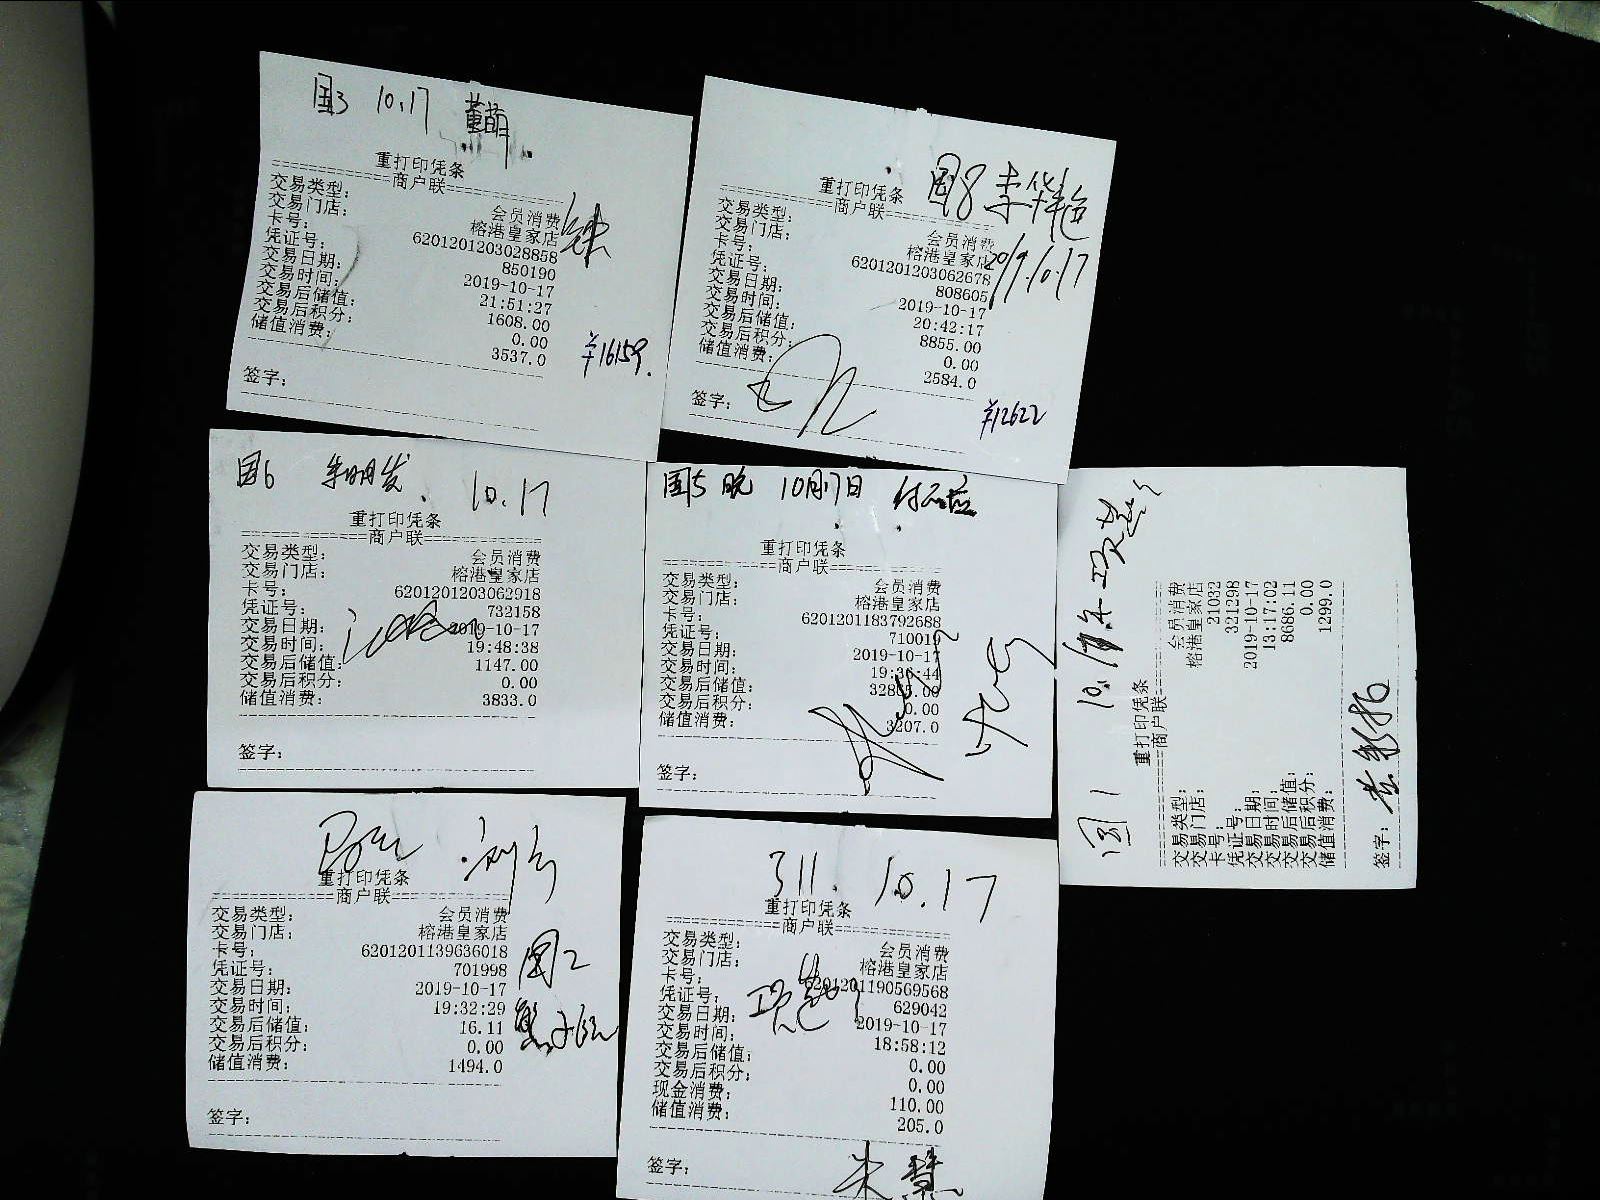 国3 10.17 董萌
重打印凭条
商户联
交易类型: 会员消费
交易门店: 榕港皇家店
卡号: 6201201203028858
凭证号: 850190
交易日期: 2019-10-17
交易时间: 21:51:27
交易后储值: 1608.00
交易后积分: 0.00
储值消费: 3537.0
¥16159.
签字:
国8 李华艳
重打印凭条
商户联
2019.10.17
交易类型: 会员消费
交易门店: 榕港皇家店
卡号: 6201201203062678
凭证号: 808605
交易日期: 2019-10-17
交易时间: 20:42:17
交易后储值: 8855.00
交易后积分: 0.00
储值消费: 2584.0
¥12622
签字:
国6 朱明发. 10.17
重打印凭条
商户联
交易类型: 会员消费
交易门店: 榕港皇家店
卡号: 6201201203062918
凭证号: 732158
交易日期: 2019-10-17
交易时间: 19:48:38
交易后储值: 1147.00
交易后积分: 0.00
储值消费: 3833.0
签字:
国5 晚 10月17日
重打印凭条
商户联
交易类型: 会员消费
交易门店: 榕港皇家店
卡号: 6201201183792688
凭证号: 710019
交易日期: 2019-10-17
交易时间: 19:36:44
交易后储值: 32805.00
交易后积分: 0.00
储值消费: 3207.0
签字:
国1 10.17
重打印凭条
商户联
交易类型: 会员消费
交易门店: 榕港皇家店
卡号: 21032
凭证号: 321298
交易日期: 2019-10-17
交易时间: 13:17:02
交易后储值: 8686.11
交易后积分: 0.00
储值消费: 1299.0
签字:
重打印凭条
商户联
交易类型: 会员消费
交易门店: 榕港皇家店
卡号: 6201201139636018
凭证号: 701998
交易日期: 2019-10-17
交易时间: 19:32:29
交易后储值: 16.11
交易后积分: 0.00
储值消费: 1494.0
国2
签字:
311. 10.17
重打印凭条
商户联
交易类型: 会员消费
交易门店: 榕港皇家店
卡号: 6201201190569568
凭证号: 629042
交易日期: 2019-10-17
交易时间: 18:58:12
交易后储值: 0.00
交易后积分: 0.00
现金消费: 110.00
储值消费: 205.0
签字: 朱慧